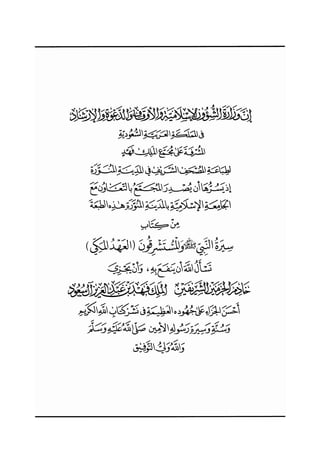 إن وزارة الشؤون الإسلامية والأوقاف والدعوة والإرشاد
في المملكة العربية السعودية
المشرفة على مجمع الملك فهد
لطباعة المصحف الشريف في المدينة المنورة
إذ يسرها أن يصدر المجمع بالتعاون مع
الجامعة الإسلامية بالمدينة المنورة هذه الطبعة
من كتاب
سيرة النبي ﷺ والمستشرقون (العهد المكي)
تسأل الله أن ينفع به، وأن يجزي
خادم الحرمين الشريفين الملك فهد بن عبد العزيز آل سعود
أحسن الجزاء على جهوده العظيمة في نشر كتاب الله الكريم
وسنة وسيرة رسوله الأمين صلى الله عليه وسلم
والله ولي التوفيق